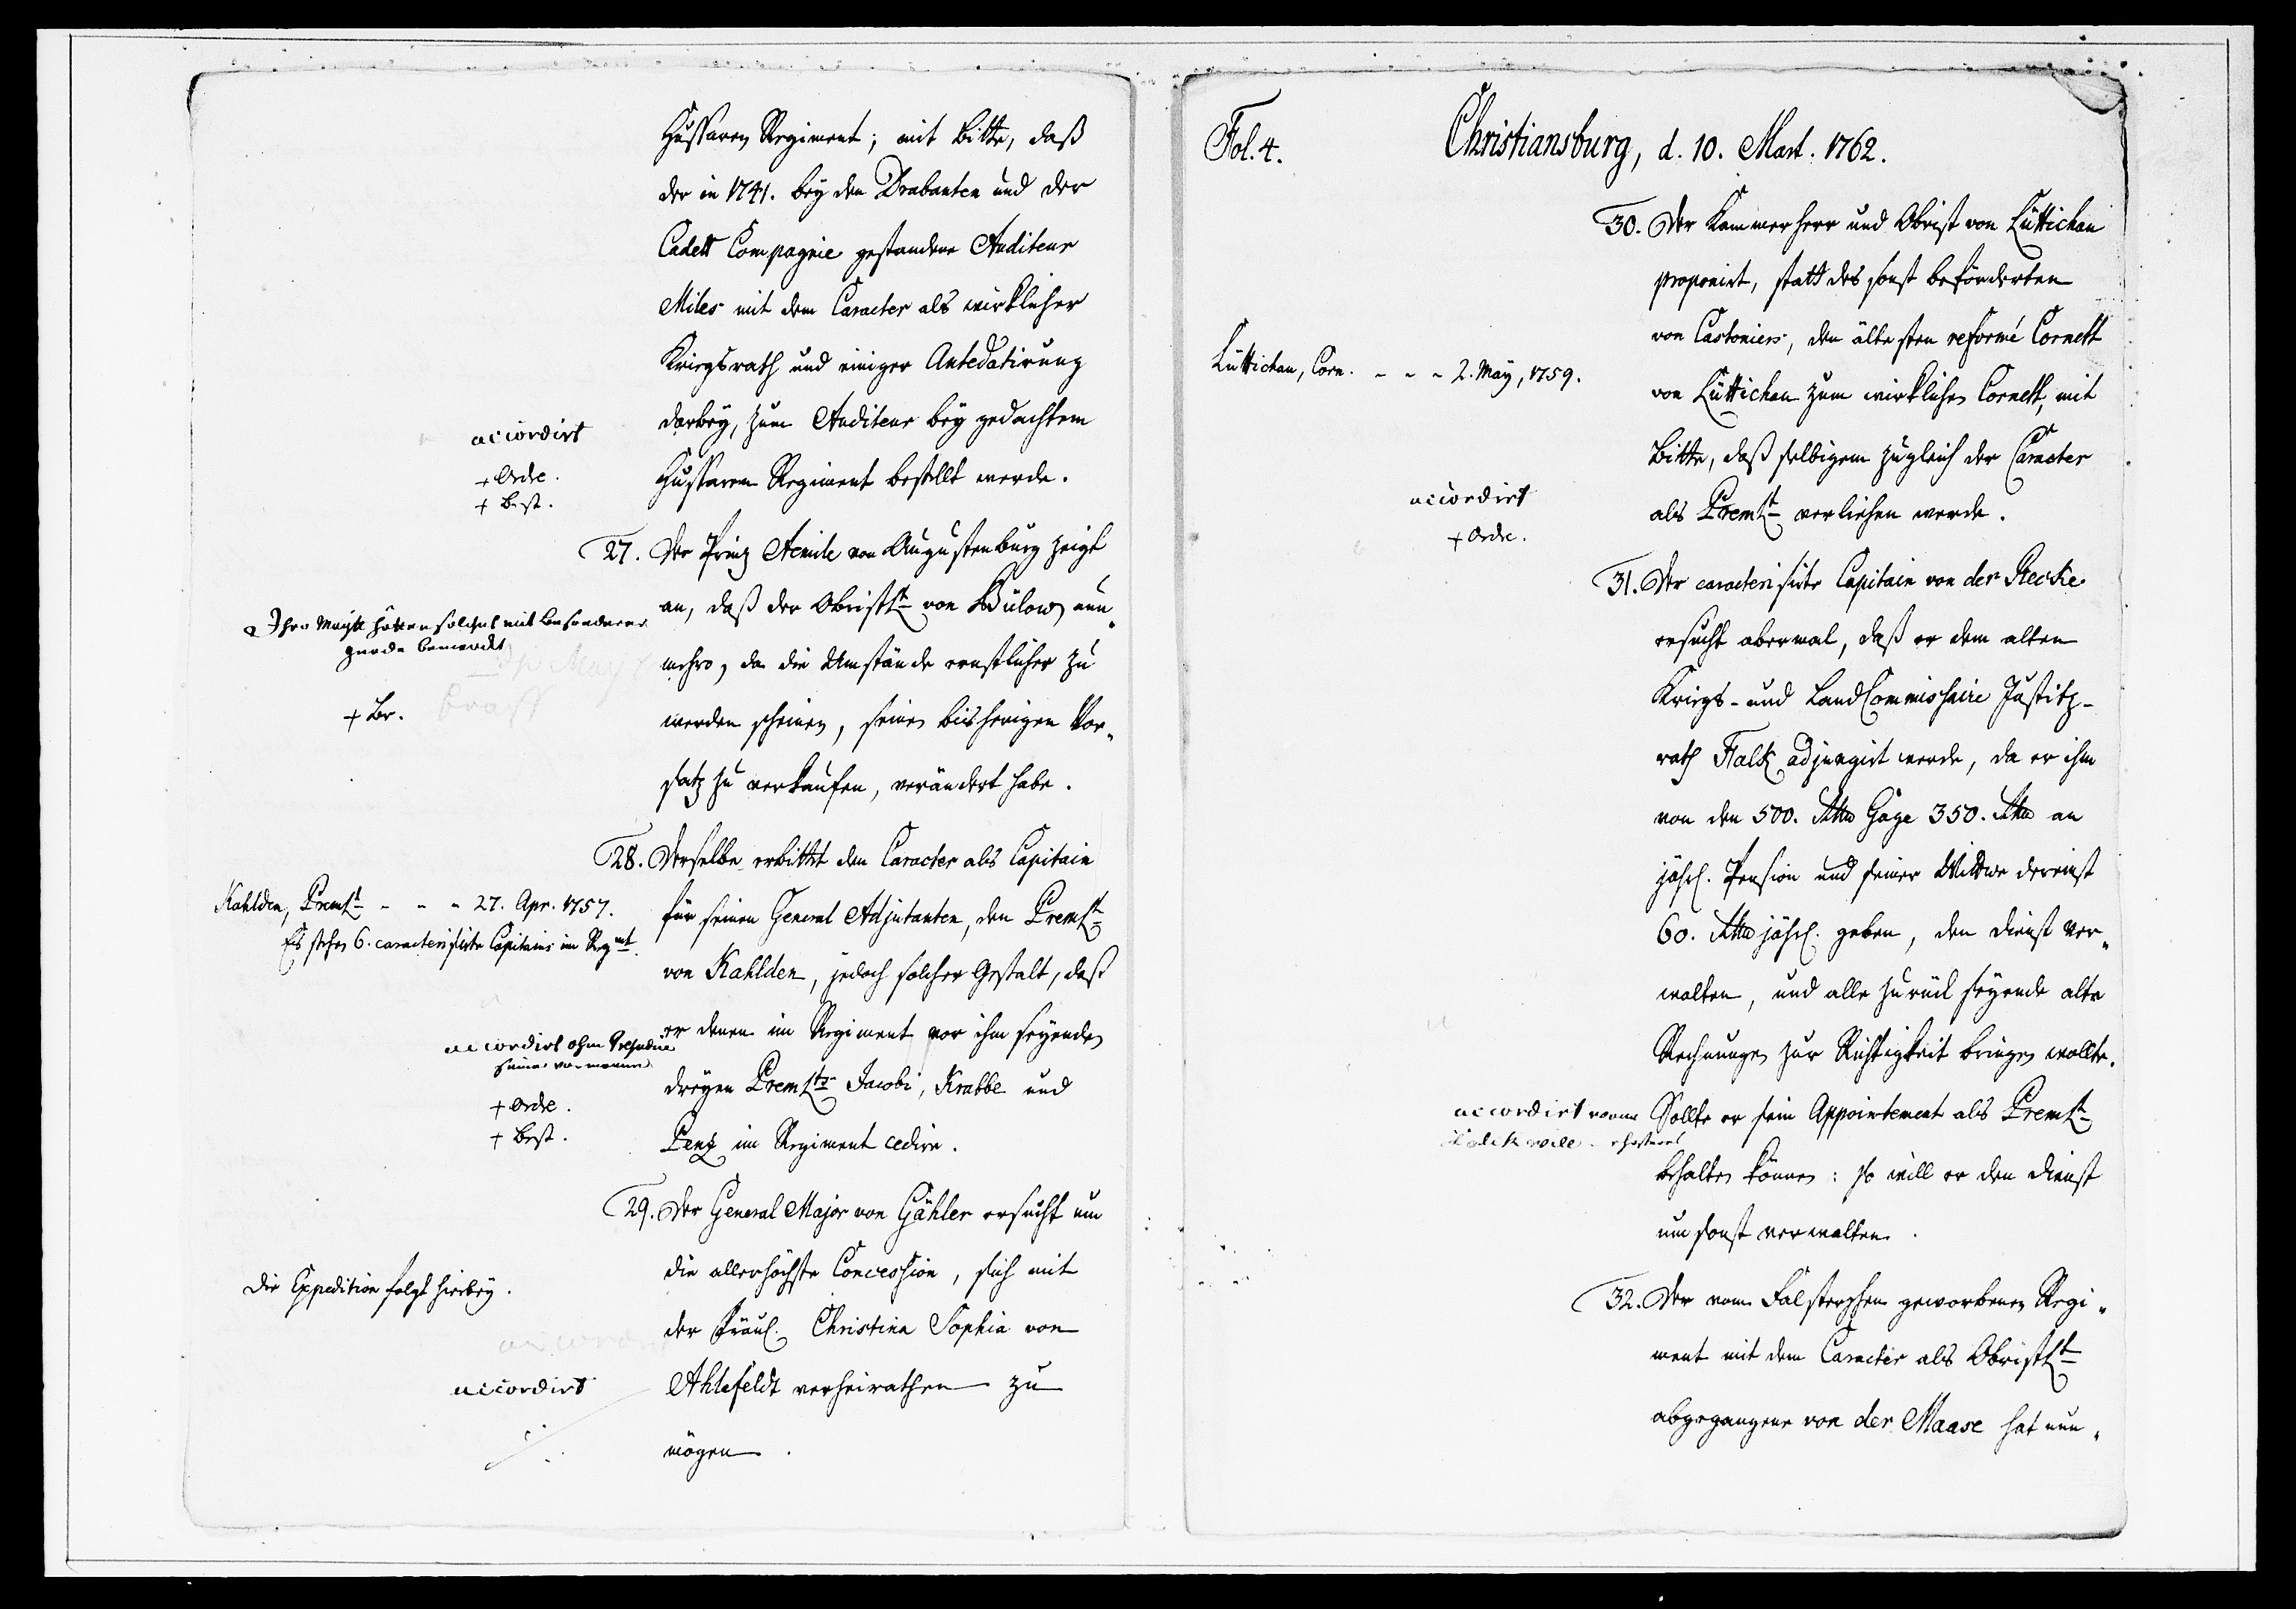 Hussaren Regiment; mit Bitte, daß
der in 1741. bey den Drabanten und der
Cadett Compagnie gestandene Auditeur
Miles mit dem Caracter als wirklicher
Kriegsrath und einiger Antedatirung
darbey, zum Auditeur bey gedachtem
accordirt
Hussaren Regiment bestellt werde.
+ Ordre.
+ Best.
27. Der Prinz Aemile von Augustenburg zeigt
an, daß der Obristlt von Bülow nun„
Ihro Maytt hätten solches mit besonderer
gnade bemerckt
mehro, da die Umstände ernstlicher zu
+ Br.
werden scheinen, seinen bisherigen Vor„
satz zu verkaufen, verändert habe.
28. Derselbe erbittet den Caracter als Capitain
Kahlden, Premlt - - - 27. Apr. 1757.
für seinen General Adjutanten, den Premlt
Es stehen 6. caracterisirte Capitains im Regmt.
von Kahlden, jedoch solcher Gestalt, daß
er denen im Regiment vor ihm seyenden
accordirt ohne Prejudice
seiner vormänner
dreyen Premlts Jacobi, Krabbe und
+ Ordre.
+ Best.
Penz im Regiment cedire.
29. Der General Major von Gähler ersucht um
die allerhöchste Concession, sich mit
Die Expedition folgt hierbey.
der Fräul. Christina Sophia von
accordirt
Ahlefeldt verheirathen zu
mögen.
Fol. 4.
Christiansburg, d. 10. Mart. 1762.
30. Der Kammerherr und Obrist von Lüttichau
proponirt, statt des sonst beförderten
von Castonier, den ältesten reformé Cornett
Lüttichau, Corn. - - - 2. May, 1759.
von Lüttichau zum wirklichen Cornett, mit
Bitte, daß selbigem zugleich der Caracter
accordirt
als Premlt verliehen werde.
+ Ordre.
31. Der caracterisirte Capitain von der Recke
ersucht abermal, daß er dem alten
Kriegs- und LandCommissaire Justitz-
rath Falk adjungirt werde, da er ihm
von den 500. Rthlr Gage 350. Rthlr an
jährl. Pension und seiner Wittwe dereinst
60. Rthlr jährl. geben, den Dienst ver„
walten, und alle zurück seyende alte
Rechnungen zur Richtigkeit bringen wollte.
accordirt wenn
Sollte er sein Appointement als Premlt
behalten können: so will er den Dienst
umsonst verwalten.
32. Der vom Falsterschen geworbenen Regi„
ment mit dem Caracter als Obristlt
abgegangene von der Maase hat nun„